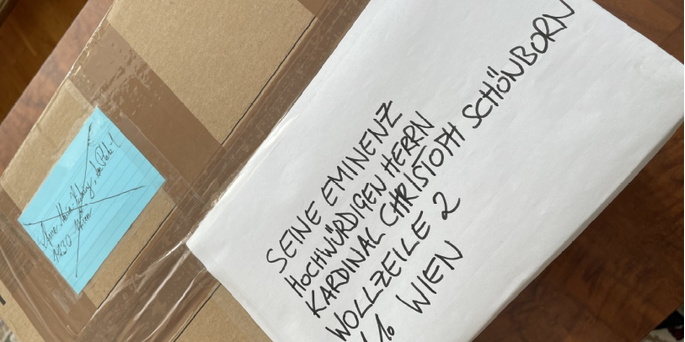 SEINE EMINENZ
HOCHWÜRDIGEN HERRN
KARDINAL CHRISTOPH SCHÖNBORN
WOLLZEILE 2
WIEN
1230 Wien